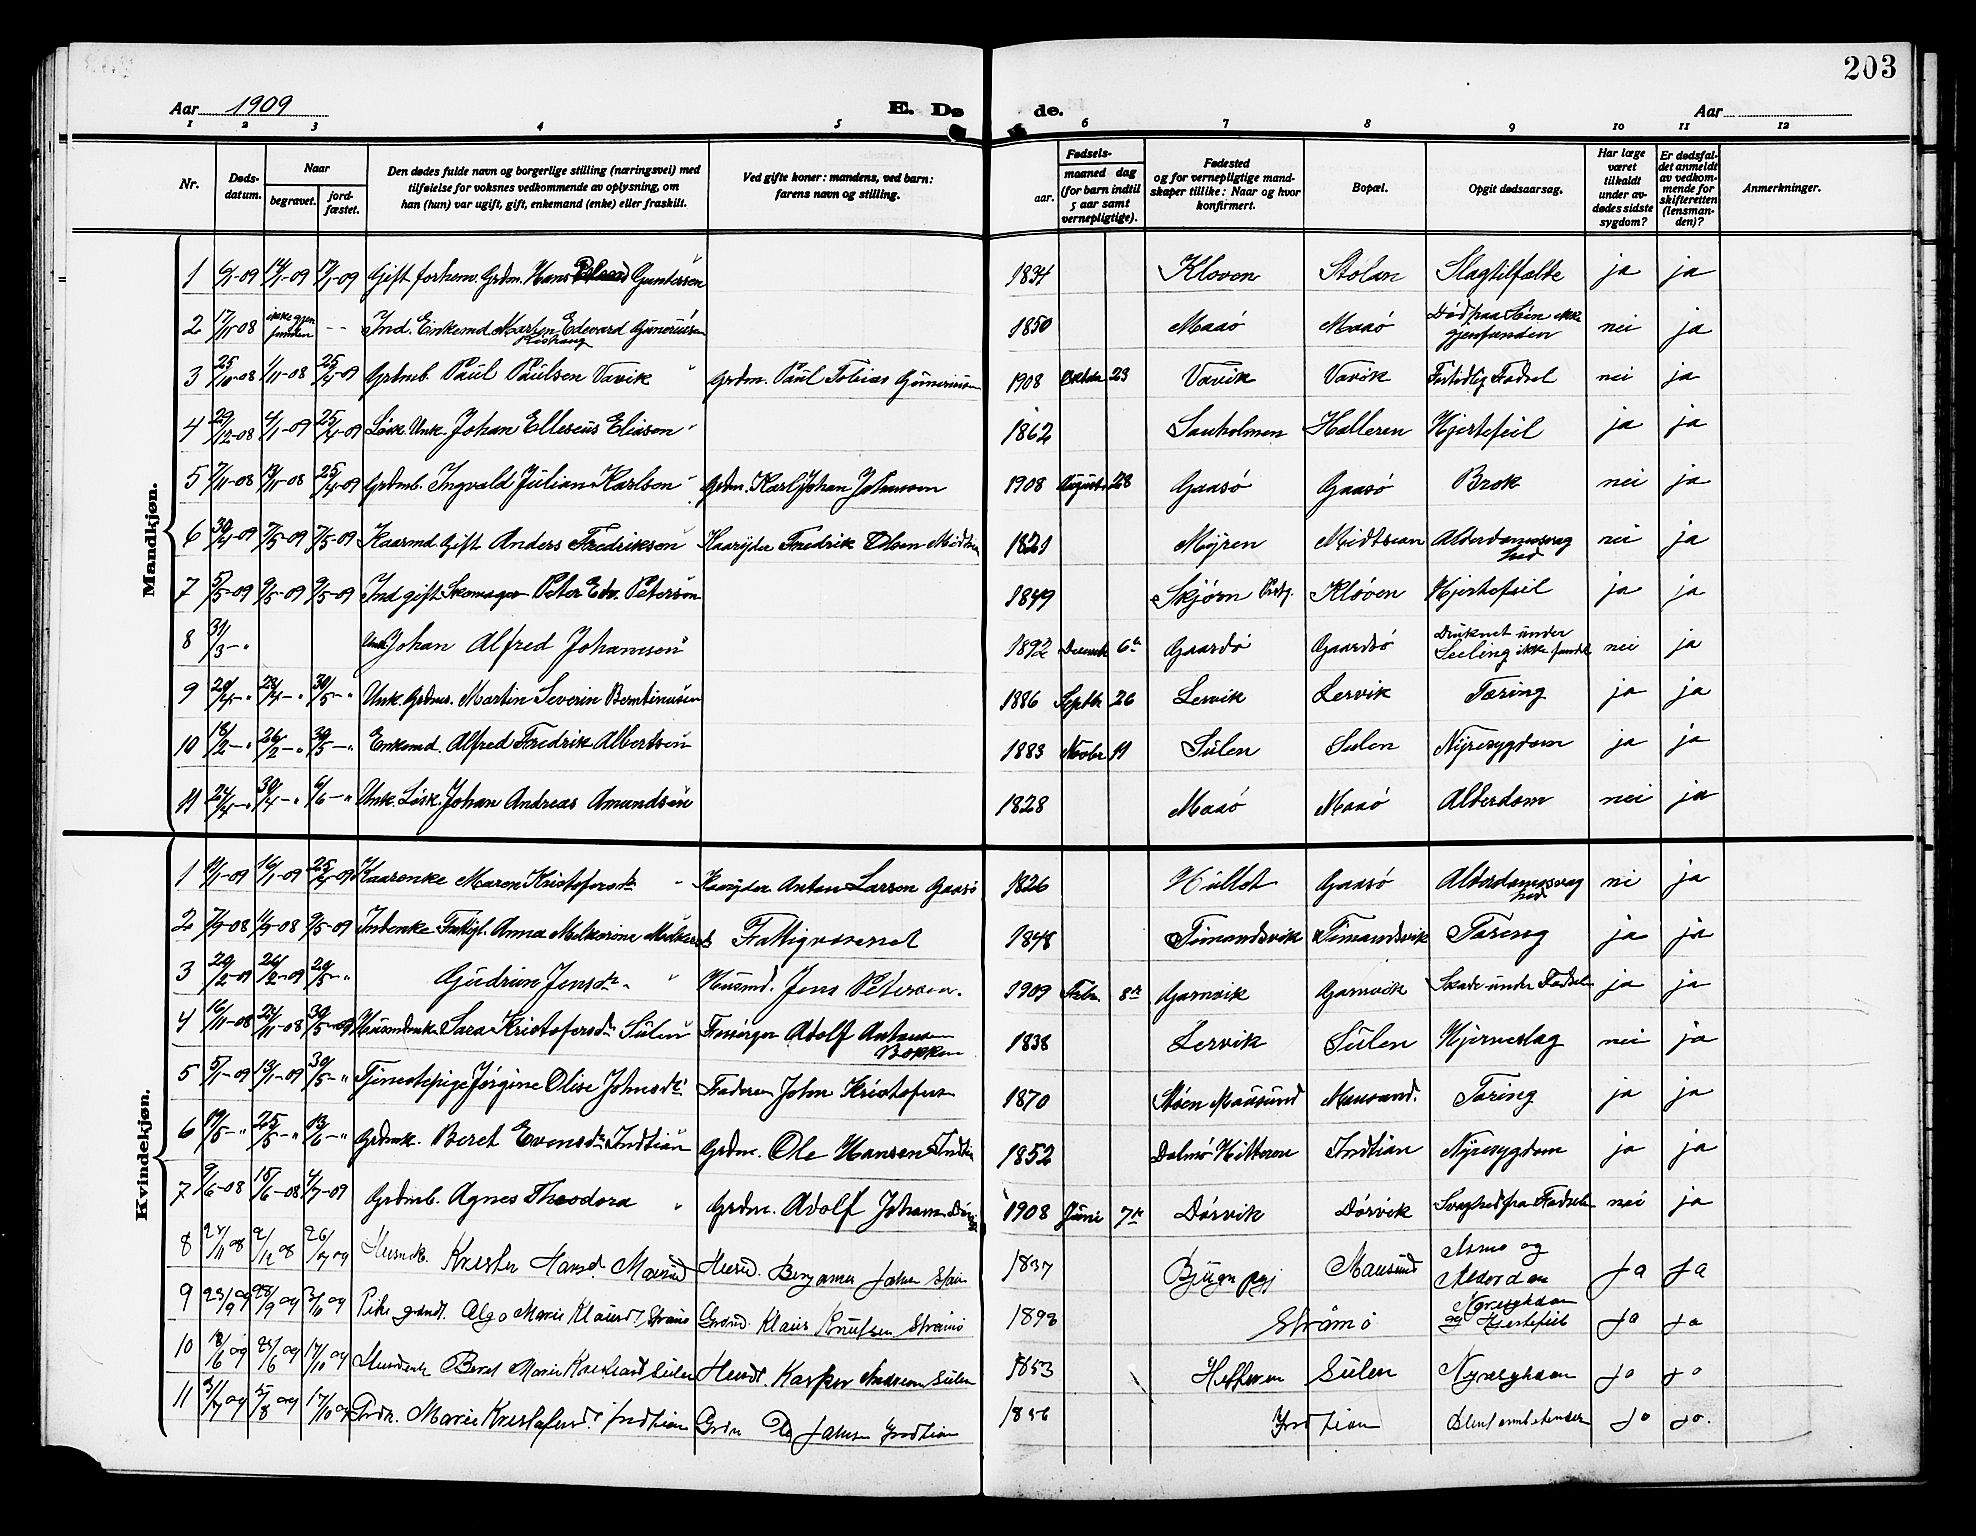 203
Aar 1909
E. Dø de.
Aar
1 2 3 4 5 6 7 8 9 10 11 12
Nr.
Døds-
datum.
Naar
begravet.
jord-
fæstet.
Den dødes fulde navn og borgerlige stilling (næringsvei) med
tilføielse for voksnes vedkommende av oplysning, om
han (hun) var ugift, gift, enkemand (enke) eller fraskilt.
Ved gifte koner: mandens, ved barn:
farens navn og stilling.
Fødsels-
aar.
maaned dag
(for barn indtil
5 aar samt
vernepligtige).
Fødested
og for vernepligtige mand-
skaper tillike: Naar og hvor
konfirmert.
Bopæl.
Opgit dødsaarsag.
Har læge
været
tilkaldt
under av-
dødes sidste
sygdom?
Er dødsfal-
det anmeldt
av vedkom-
mende for
skifteretten
(lensman-
den)?
Anmerkninger.
Mandkjøn.
1 6/1-09 14/1-09 17/1-09 Gift forhem. Grdm. Hans Guntersen 1834 Kloven Stolan Slagtilfælde ja ja
2 17/11-08 ikke gjen funden -- Ind. Enkemd Morten Edevard Gunerius 1850 Maasö Maasö Død paa Søen ikke gjenfunden nei ja
3 25/10-08 1/11-08 25/4-09 Grdmb. Paul Paulsen Vavik Grdm. Paul Tobias Guneriusen 1908 Oktobr 23 Vavik Vavik Fortidlig Fødsel nei ja
4 29/12-08 4/1-09 25/4-09 Løsk. Unk. Johan Elleseus Eliasen 1862 Sauholmen Halleren Hjertefeil ja ja
5 7/11-08 13/11-08 25/4-09 Grdmb. Ingvald Julian Karlsen Grdm. Karl Johan Johansen 1908 August 28 Gaasö Gaasö Brok nei ja
6 30/4-09 7/5-09 7/5-09 Kaarmd. Gift Anders Fredriksen Kaaryder Fredrik Olsen 1821 Myren Midtsian Alderdomssvaghed nei ja
7 5/5-09 9/5-09 9/5-09 Ind gift Skomager Peter Edv. Petersen 1849 Skjørn Prstg. Kløven Hjertefeil ja ja
8 31/3-" Unk. Johan Alfred Johannesen 1892 Decemb 6te Gaardö Gaardsö Druknet under Seeling ikke funden nei ja
9 20/4-" 28/4-" 30/5-" Unk. Grdms. Martin Severin Berntinusen 1886 Septbr 26 Lervik Lervik Tæring ja ja
10 18/2-" 26/2-" 30/5-" Enkemd. Alfred Fredrik Albertsen 1883 Novbr 11 Sulen Sulen Nyresygdom ja ja
11 24/4-" 30/4-" 6/6-" Unk. Løsk. Johan Andreas Amundsen 1828 Maasö Maasö Alderdom nei ja
Kvindekjøn.
1 11/1-09 16/1-09 25/4-09 Kaarenke Maren Kristofersdr. Kaaryder Anton Larsen Gaasö 1826 Hallet Gaasö Alderdomssvaghed ni ja
2 7/9-08 11/9-08 9/5-09 Indenke Fattigl. Anna Melkerine Fattigvæsenet 1848 Timandsvik Timandsvik Tæring ja ja
3 20/2-09 26/2-09 20/5-" Gudrun Jensdr. Husmd. Jens Petersen. 1909 Febr. 8de Garnvik Garnvik Skade under Fødsel ja ja
4 16/11-08 24/11-08 30/5-09 Sara Kristofersdr. Sulen Forsørger Adolf Antonsen Bokken 1838 Lervik Sulen Hjerneslag nei ja
5 5/1-09 13/1-09 30/5-" Tjenestepige Jørgine Olise Johnsdr. Faderen John Kristofers 1870 Støen Mausund Mausund. Tæring ja ja
6 17/5-" 25/5-" 13/6-" Grdmk. Beret Evensdr. Indtian Grdm. Ole Hansen Indtia 1852 Dolmö Hitteren Indtian Nyresygdom ja ja
7 9/6-08 15/6-08 4/7-09 Grdmb. Agnes Theodora Grdm. Adolf Johansen 1908 Juni 7de Dørvik Dørvik Svaghed fra Fødselen nei ja
8 24/11 08 2/12 08 26/7 09 Husmk. Hansd. Mausud Husmd. Benjamin Johns 1837 Bjugn Mausund Asma og Alderdom ja ja
9 23/9 09 28/9 09 3/10 09 Pike Marie Klausd. Strømö Grdmd. Klaus Knutsen Strømö 1893 Strømö Nyresykdom og Hjertefeil ja ja
10 18/6 09 25/6 09 17/10 09 Beret Marie Sulen Husd. Kasper Andreasen Sulen 1853 Hitteren Sulen Nyresykdom ja ja
11 31/7 09 5/8 09 17/10 09 Grdk. Marie Kristofersd. Indtian Grdm Johnsen Indtian 1856 Indtian ja ja.